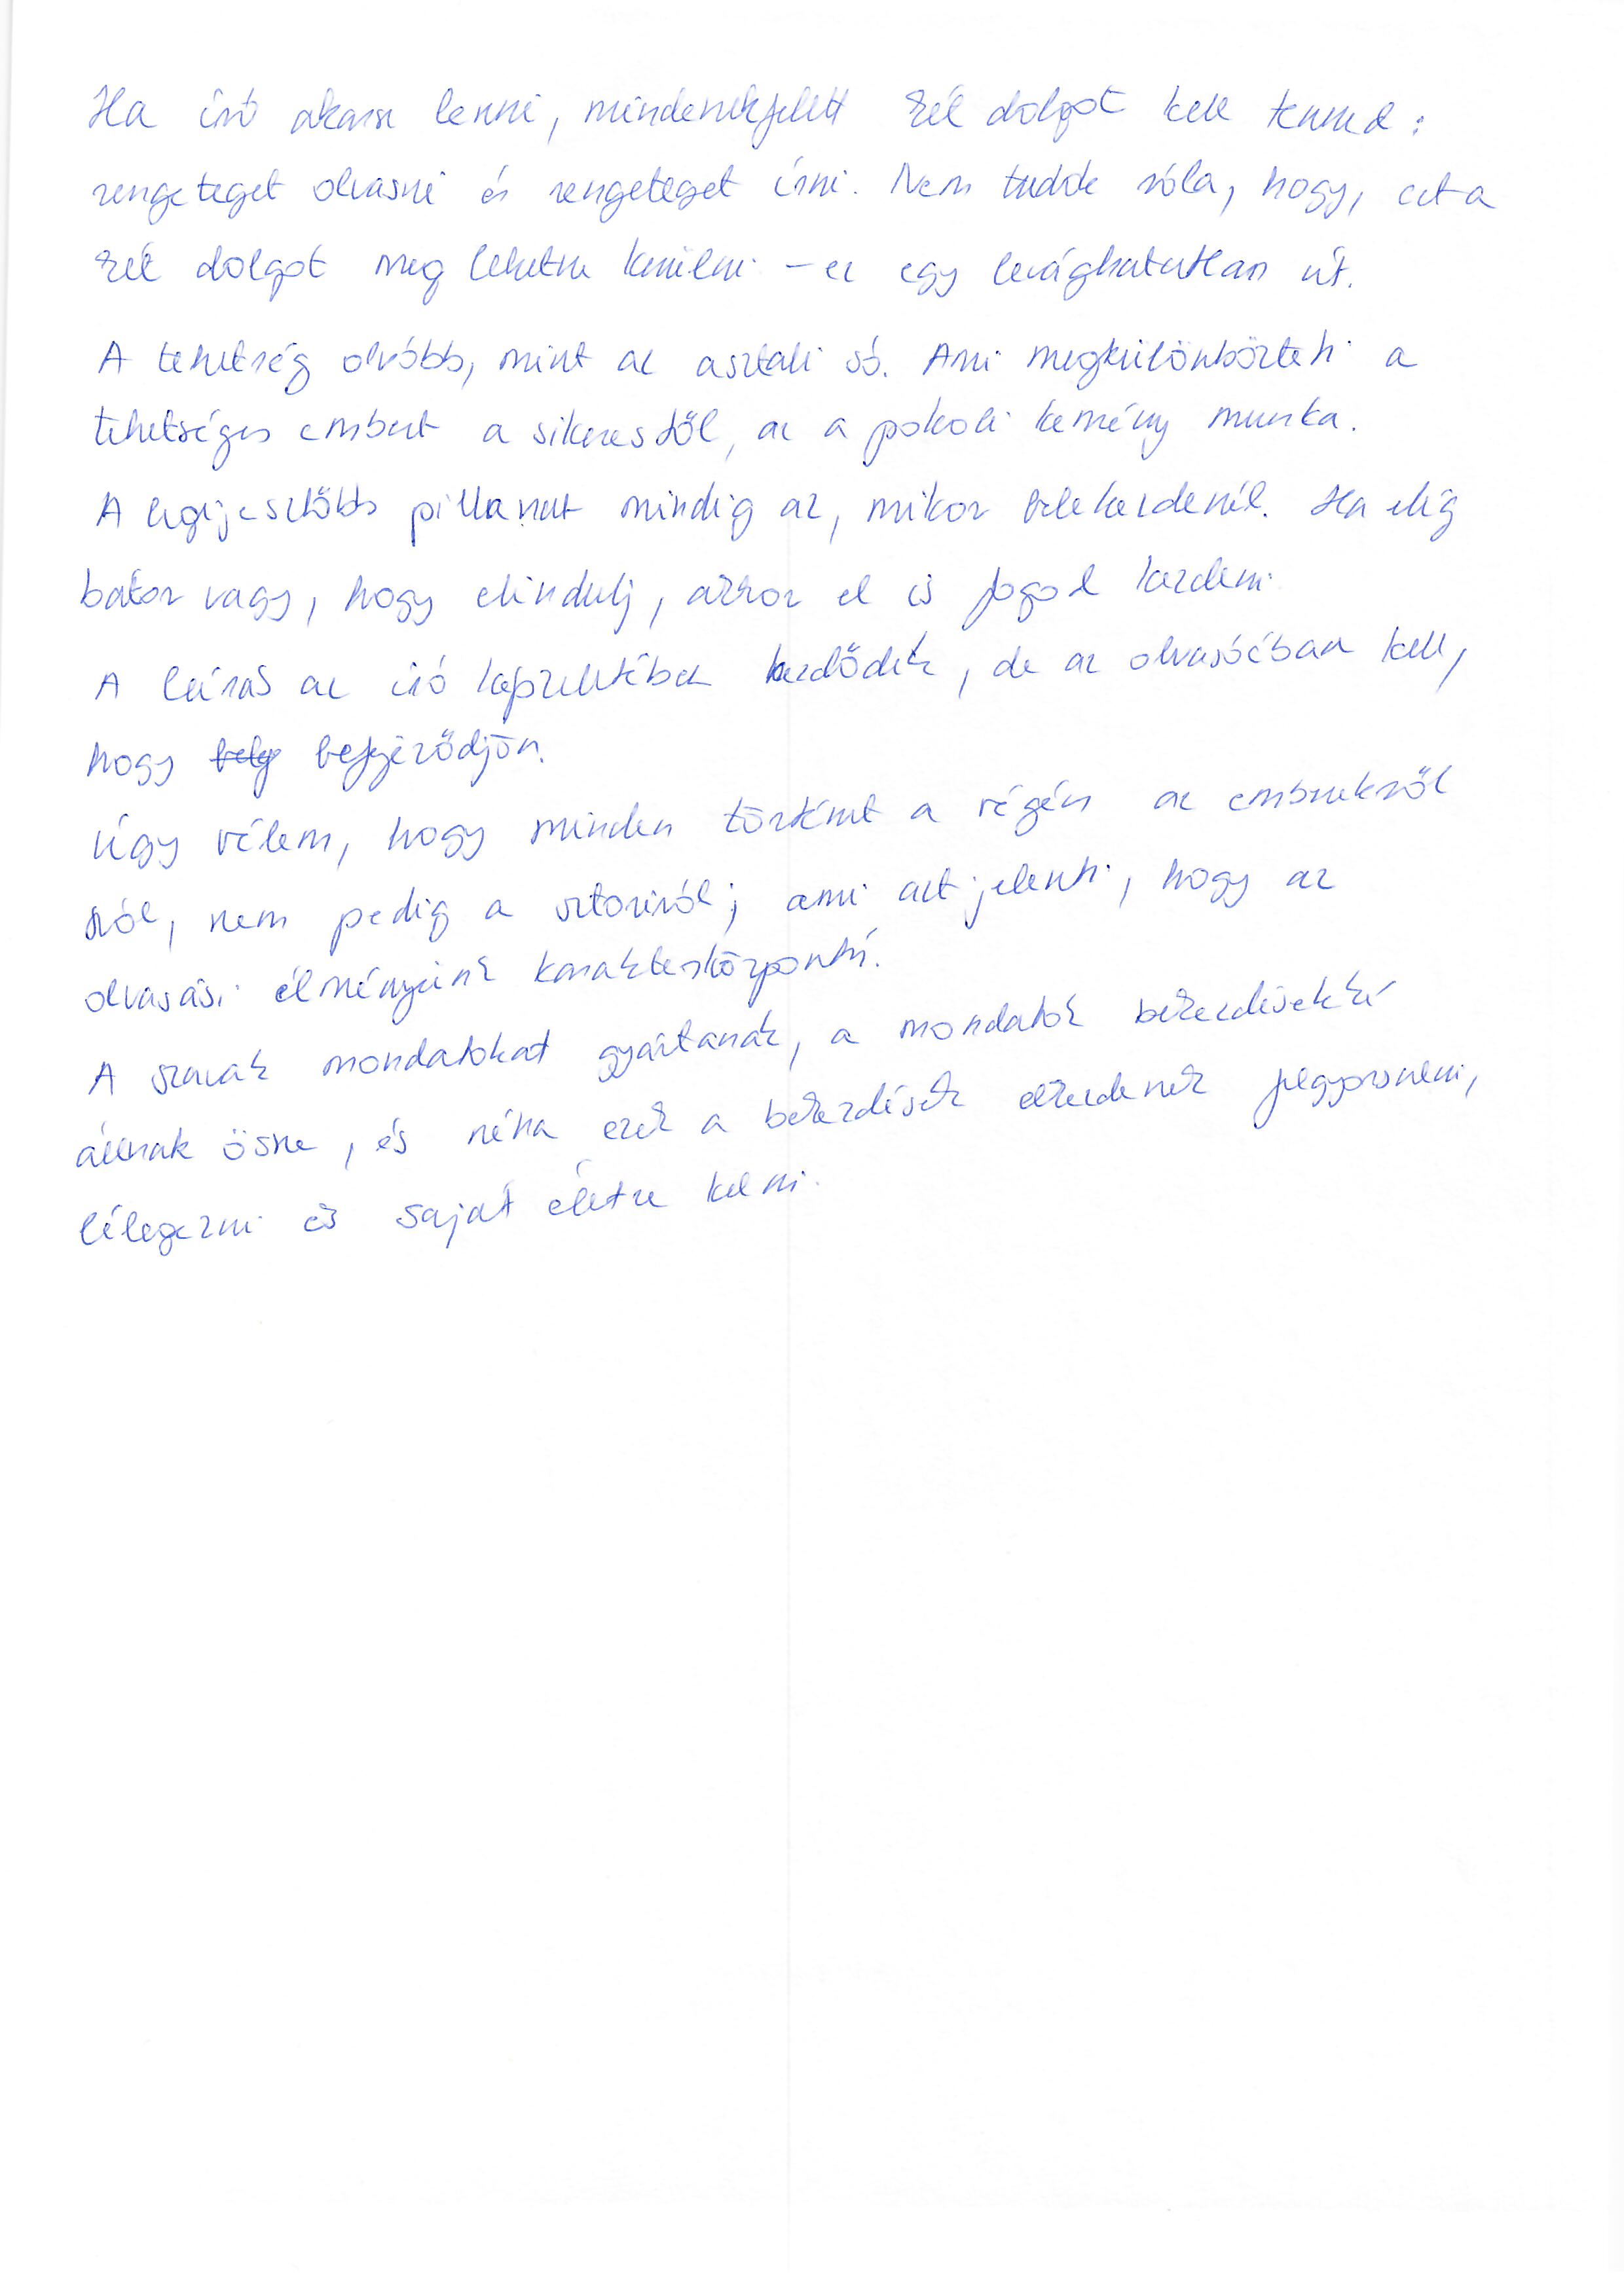 Ha író akarsz lenni, mindenekfelett két dolgot kell tenned:
rengeteget olvasni és rengeteget írni. Nem tudok róla, hogy, ezt a
két dolgot meg lehetne kerülni – ez egy levághatatlan út.
A tehetség olcsóbb, mint az asztali só. Ami megkülönbözteti a
tehetséges embert a sikerestől, az a pokoli kemény munka.
A legijesztőbb pillanat mindig az, mikor belekezdenél. Ha elég
bátor vagy, hogy elindulj, akkor el is fogod kezdeni.
A leírás az író képzeletében kezdődik, de az olvasóéban kell,
hogy befejeződjön.
Úgy vélem, hogy minden történet a végén az emberekről
szól, nem pedig a sztoriról; ami azt jelenti, hogy az
olvasási élményünk karakterközpontú.
A szavak mondatokat gyártanak, a mondatok bekezdésekké
állnak össze, és néha ezek a bekezdések elkezdenek felgyorsulni,
lélegezni és saját életre kelni.